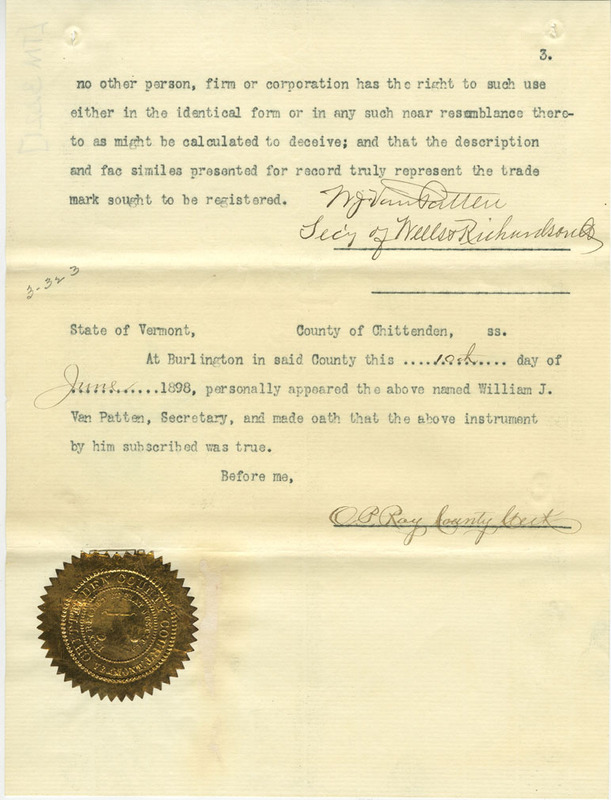 3.
no other person, firm or corporation has the right to such use
either in the identical form or in any such near resemblance there-
to as might be calculated to deceive; and that the description
and fac similes presented for record truly represent the trade
mark sought to be registered.
W J Van Patten
Sec'y of Wells & Richardson Co
3-323
State of Vermont, County of Chittenden, ss.
At Burlington in said County this ....10th..... day of
June......1898, personally appeared the above named William J.
Van Patten, Secretary, and made oath that the above instrument
by him subscribed was true.
Before me,
O. P. Ray County Clerk
CHITTENDEN COUNTY COURT